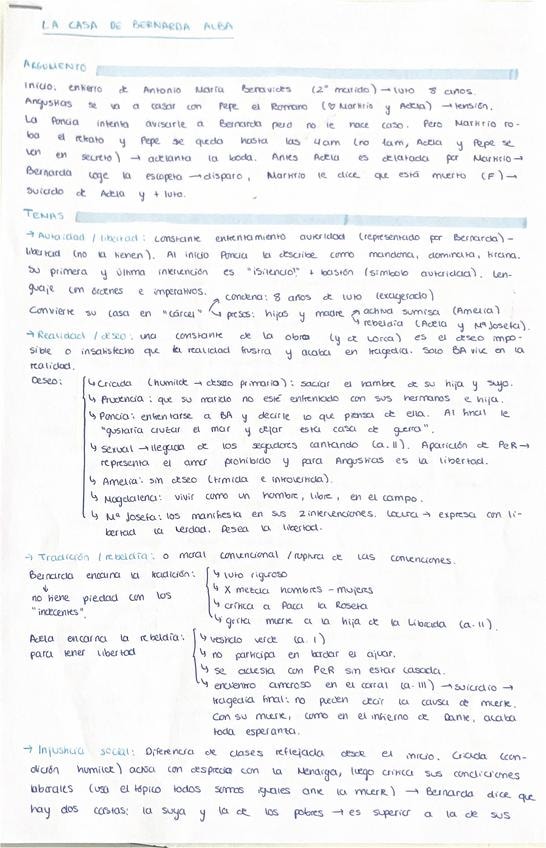 LA CASA DE BERNARDA ALBA
ARGUMENTO
Inicio. entierro de Antonio María Benavides (2º marido) → luto 8 años.
Angustias se va a casar con Pepe el Romano (♡ Martirio y Adela) → tensión.
La Poncia intenta avisarle a Bernarda pero no le hace caso. Pero Martirio ro-
ba el retrato y Pepe se queda hasta las 4am (no 1am, Adela y Pepe se
ven en secreto) → adelanta la boda. Antes Adela es delatada por Martirio →
Bernarda coge la escopeta → disparo, Martirio le dice que está muerto (F) →
suicidio de Adela y + luto.
TEMAS
→ Autoridad / libertad: constante enfrentamiento autoridad (representado por Bernarda) -
libertad (no la tienen). Al inicio Poncia la describe como mandona, dominanta, tirana.
Su primera y última intervención es "¡Silencio!" + bastón (símbolo autoridad). Len-
guaje con órdenes e imperativos.
→ condena: 8 años de luto (exagerado)
Convierte su casa en "cárcel" → presos: hijas y madre → actitud sumisa (Amelia)
→ rebeldía (Adela y Mª Josefa).
→ Realidad / deseo: una constante de la obra (y de Lorca) es el deseo impo-
sible o insatisfecho que la realidad frustra y acaba en tragedia. Solo BA vive en la
realidad.
Deseo: ↳ Criada (humilde → deseo primario): saciar el hambre de su hija y suyo.
↳ Prudencia: que su marido no esté enfrentado con sus hermanos e hija.
↳ Poncia: enfrentarse a BA y decirle lo que piensa de ella. Al final le
"gustaría cruzar el mar y dejar esta casa de guerra".
↳ sexual → llegada de los segadores cantando (a. II). Aparición de PeR →
representa el amor prohibido y para Angustias es la libertad.
↳ Amelia: sin deseo (tímida e introvertida).
↳ Magdalena: vivir como un hombre, libre, en el campo.
↳ Mª Josefa: los manifiesta en sus 2 intervenciones. Locura → expresa con li-
bertad la verdad. Desea la libertad.
→ Tradición / rebeldía: o moral convencional / ruptura de las convenciones.
Bernarda encarna la tradición: ↳ luto riguroso
↓ ↳ X mezcla hombres - mujeres
no tiene piedad con los ↳ critica a Paca la Roseta
"indecentes". ↳ grita muerte a la hija de la Librada (a. II).
Adela encarna la rebeldía: ↳ vestido verde (a. I)
para tener libertad ↳ no participa en bordar el ajuar.
↳ se acuesta con PeR sin estar casada.
↳ encuentro amoroso en el corral (a. III) → suicidio →
tragedia final: no pueden decir la causa de muerte.
Con su muerte, como en el infierno de Dante, acaba
toda esperanza.
→ Injusticia social: Diferencia de clases reflejada desde el inicio. Criada (con-
dición humilde) actúa con desprecio con la Mendiga, luego critica sus condiciones
laborales (usa el tópico todos somos iguales ante la muerte) → Bernarda dice que
hay dos castas: la suya y la de los pobres → es superior a la de sus